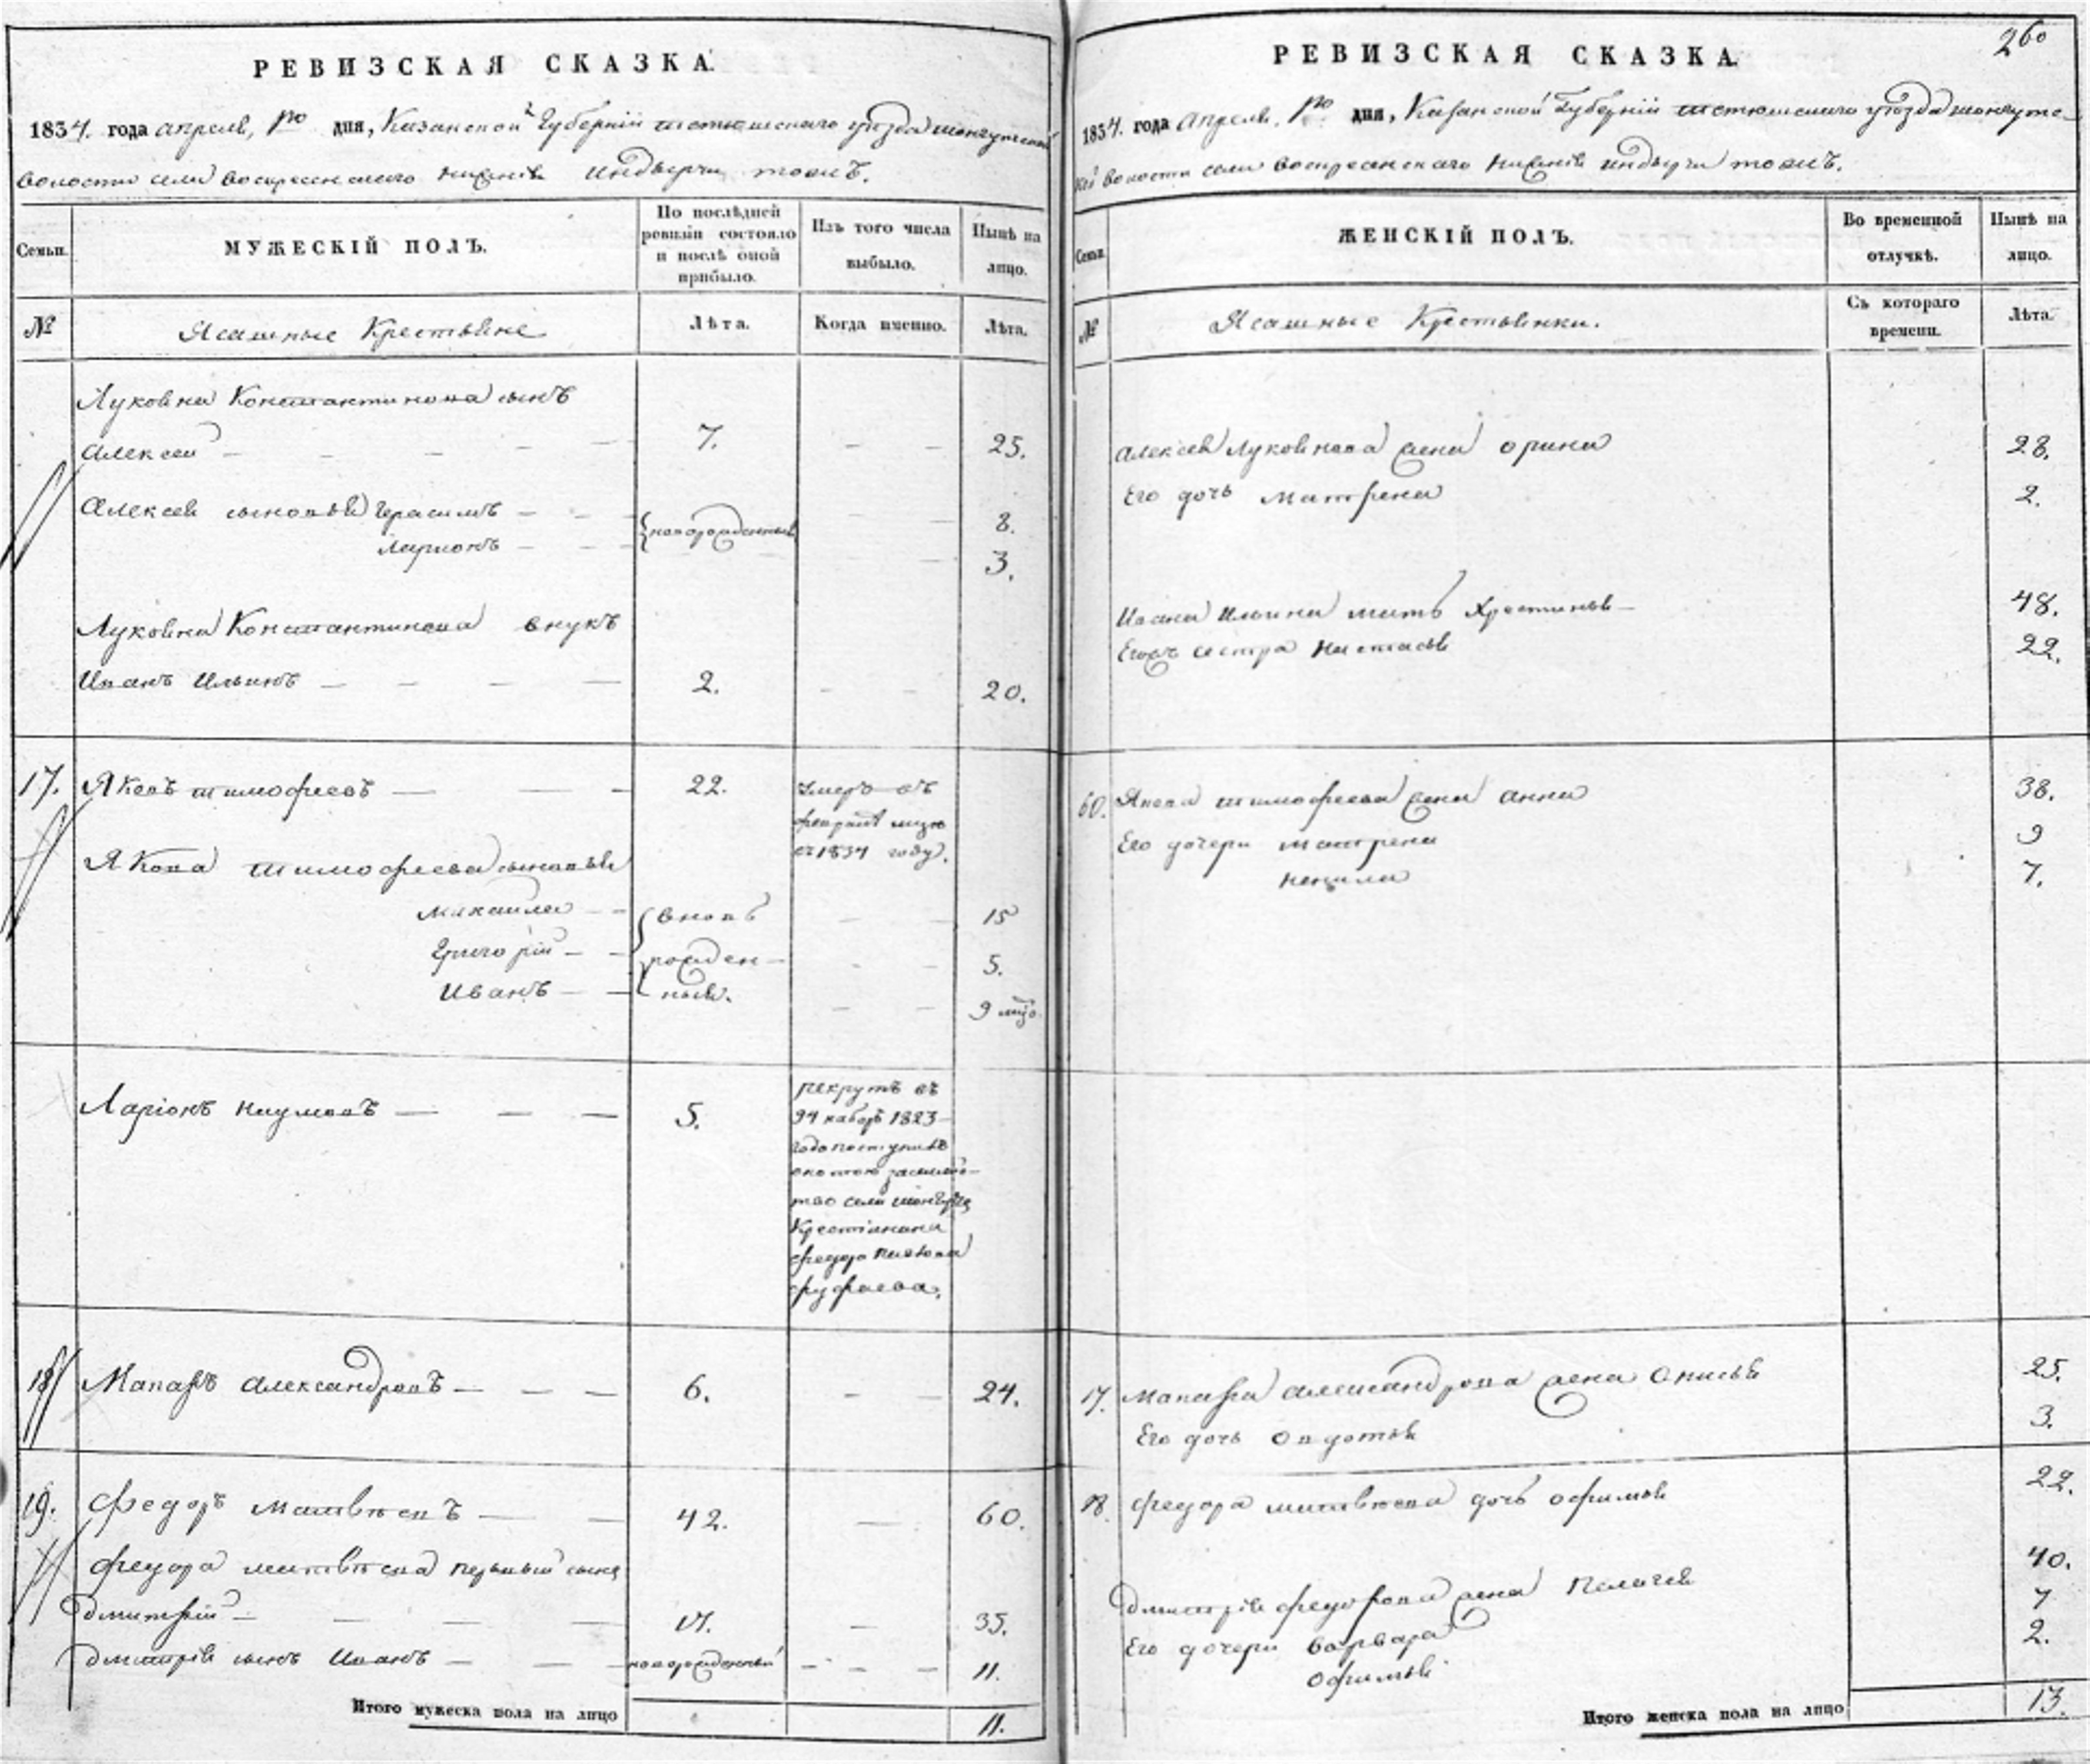 РЕВИЗСКАЯ СКАЗКА.
1834. года апреля, дня, Казанской Губерніи тетюшскаго уѣзда
волости села воскресенскаго Индырчи тожъ.
Семьи.
МУЖЕСКІЙ ПОЛЪ.
По послѣдней ревизіи состояло и послѣ оной прибыло.
Изъ того числа выбыло.
Нынѣ на лицо.
№
Ясашные Крестьяне
Лѣта.
Когда именно.
Лѣта.
Луковна Константинова сынъ
Алексей 7. 25.
Алексея сыновья Герасимъ новорожденныя 8.
Ларионъ 3.
Луковна Константинова внукъ
Иванъ Ильинъ 2. 20.
17. Яковъ тимофеевъ 22. умеръ въ
феврале
въ 1834 году.
Якова тимофеева сыновья
Михаила вновь 15
Григорій рожден- 5.
Иванъ ныя. 9
Ларіонъ наумовъ 5. рекрутъ въ
94 наборъ 1823
года поступилъ
села
Крестіанина
федора
18 Макаръ александровъ 6. 24.
19. федоръ матвѣевъ 42. 60.
федора матвѣева первый сынъ
дмитрій 17. 35.
дмитрія сынъ Иванъ новорожденный 11.
Итого мужеска пола на лицо 11.
260
РЕВИЗСКАЯ СКАЗКА.
1834. года Апреля. дня, Казанской Губерніи тетюшскаго уѣзда
волости села воскресенскаго индырчи тожъ.
Семьи.
ЖЕНСКІЙ ПОЛЪ.
Во временной отлучкѣ.
Нынѣ на лицо.
№
Ясашные Крестьянки.
Съ котораго времени.
Лѣта.
Алексея Луковнова жена орина 28.
Его дочь матрена 2.
Ивана Ильина мать Хрестинья 48.
Его сестра настасья 22.
60. Якова тимофеева жена анна 38.
Его дочери матрена 9
ненила 7.
17. Макара александрова жена Анисья 25.
Его дочь овдотья 3.
18. федора матвѣева дочь офимья 22.
дмитрія федорова жена Пелагея 40.
Его дочери варвара 7
офимья 2.
Итого женска пола на лицо 13.